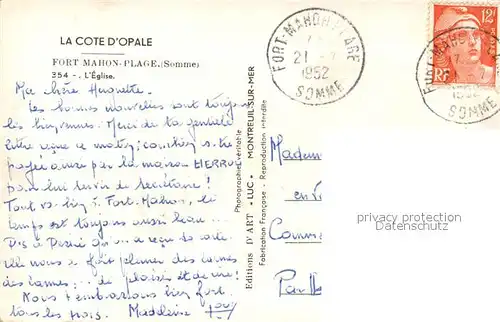 LA COTE D'OPALE
FORT MAHON-PLAGE (Somme)
354 - . L'Église.
Ma chère Huguette.
Les bonnes nouvelles sont toujours
les bienvenues. Merci de ta gentille
lettre reçue ce matin; combien es-tu
payée par la maison PIERROU
pour lui servir de secrétaire!
Tout va bien à Fort-Mahon, le
temps est toujours aussi beau...
Dis à Désiré qu'on a reçu sa carte
elle nous a fait pleurer des larmes
des larmes... de plaisir et de rire!
Nous t'embrassons bien fort
tous les trois. Madeleine
Photographie véritable
Editions D'ART "LUC" MONTREUIL-SUR-MER
Fabrication Française - Reproduction interdite
FORT-MAHON-PLAGE
21 - 7
1952
SOMME
12F
RF
FORT-MAHON-PLAGE
1952
SOMME
Madem
en V
privacy protection
Datenschutz